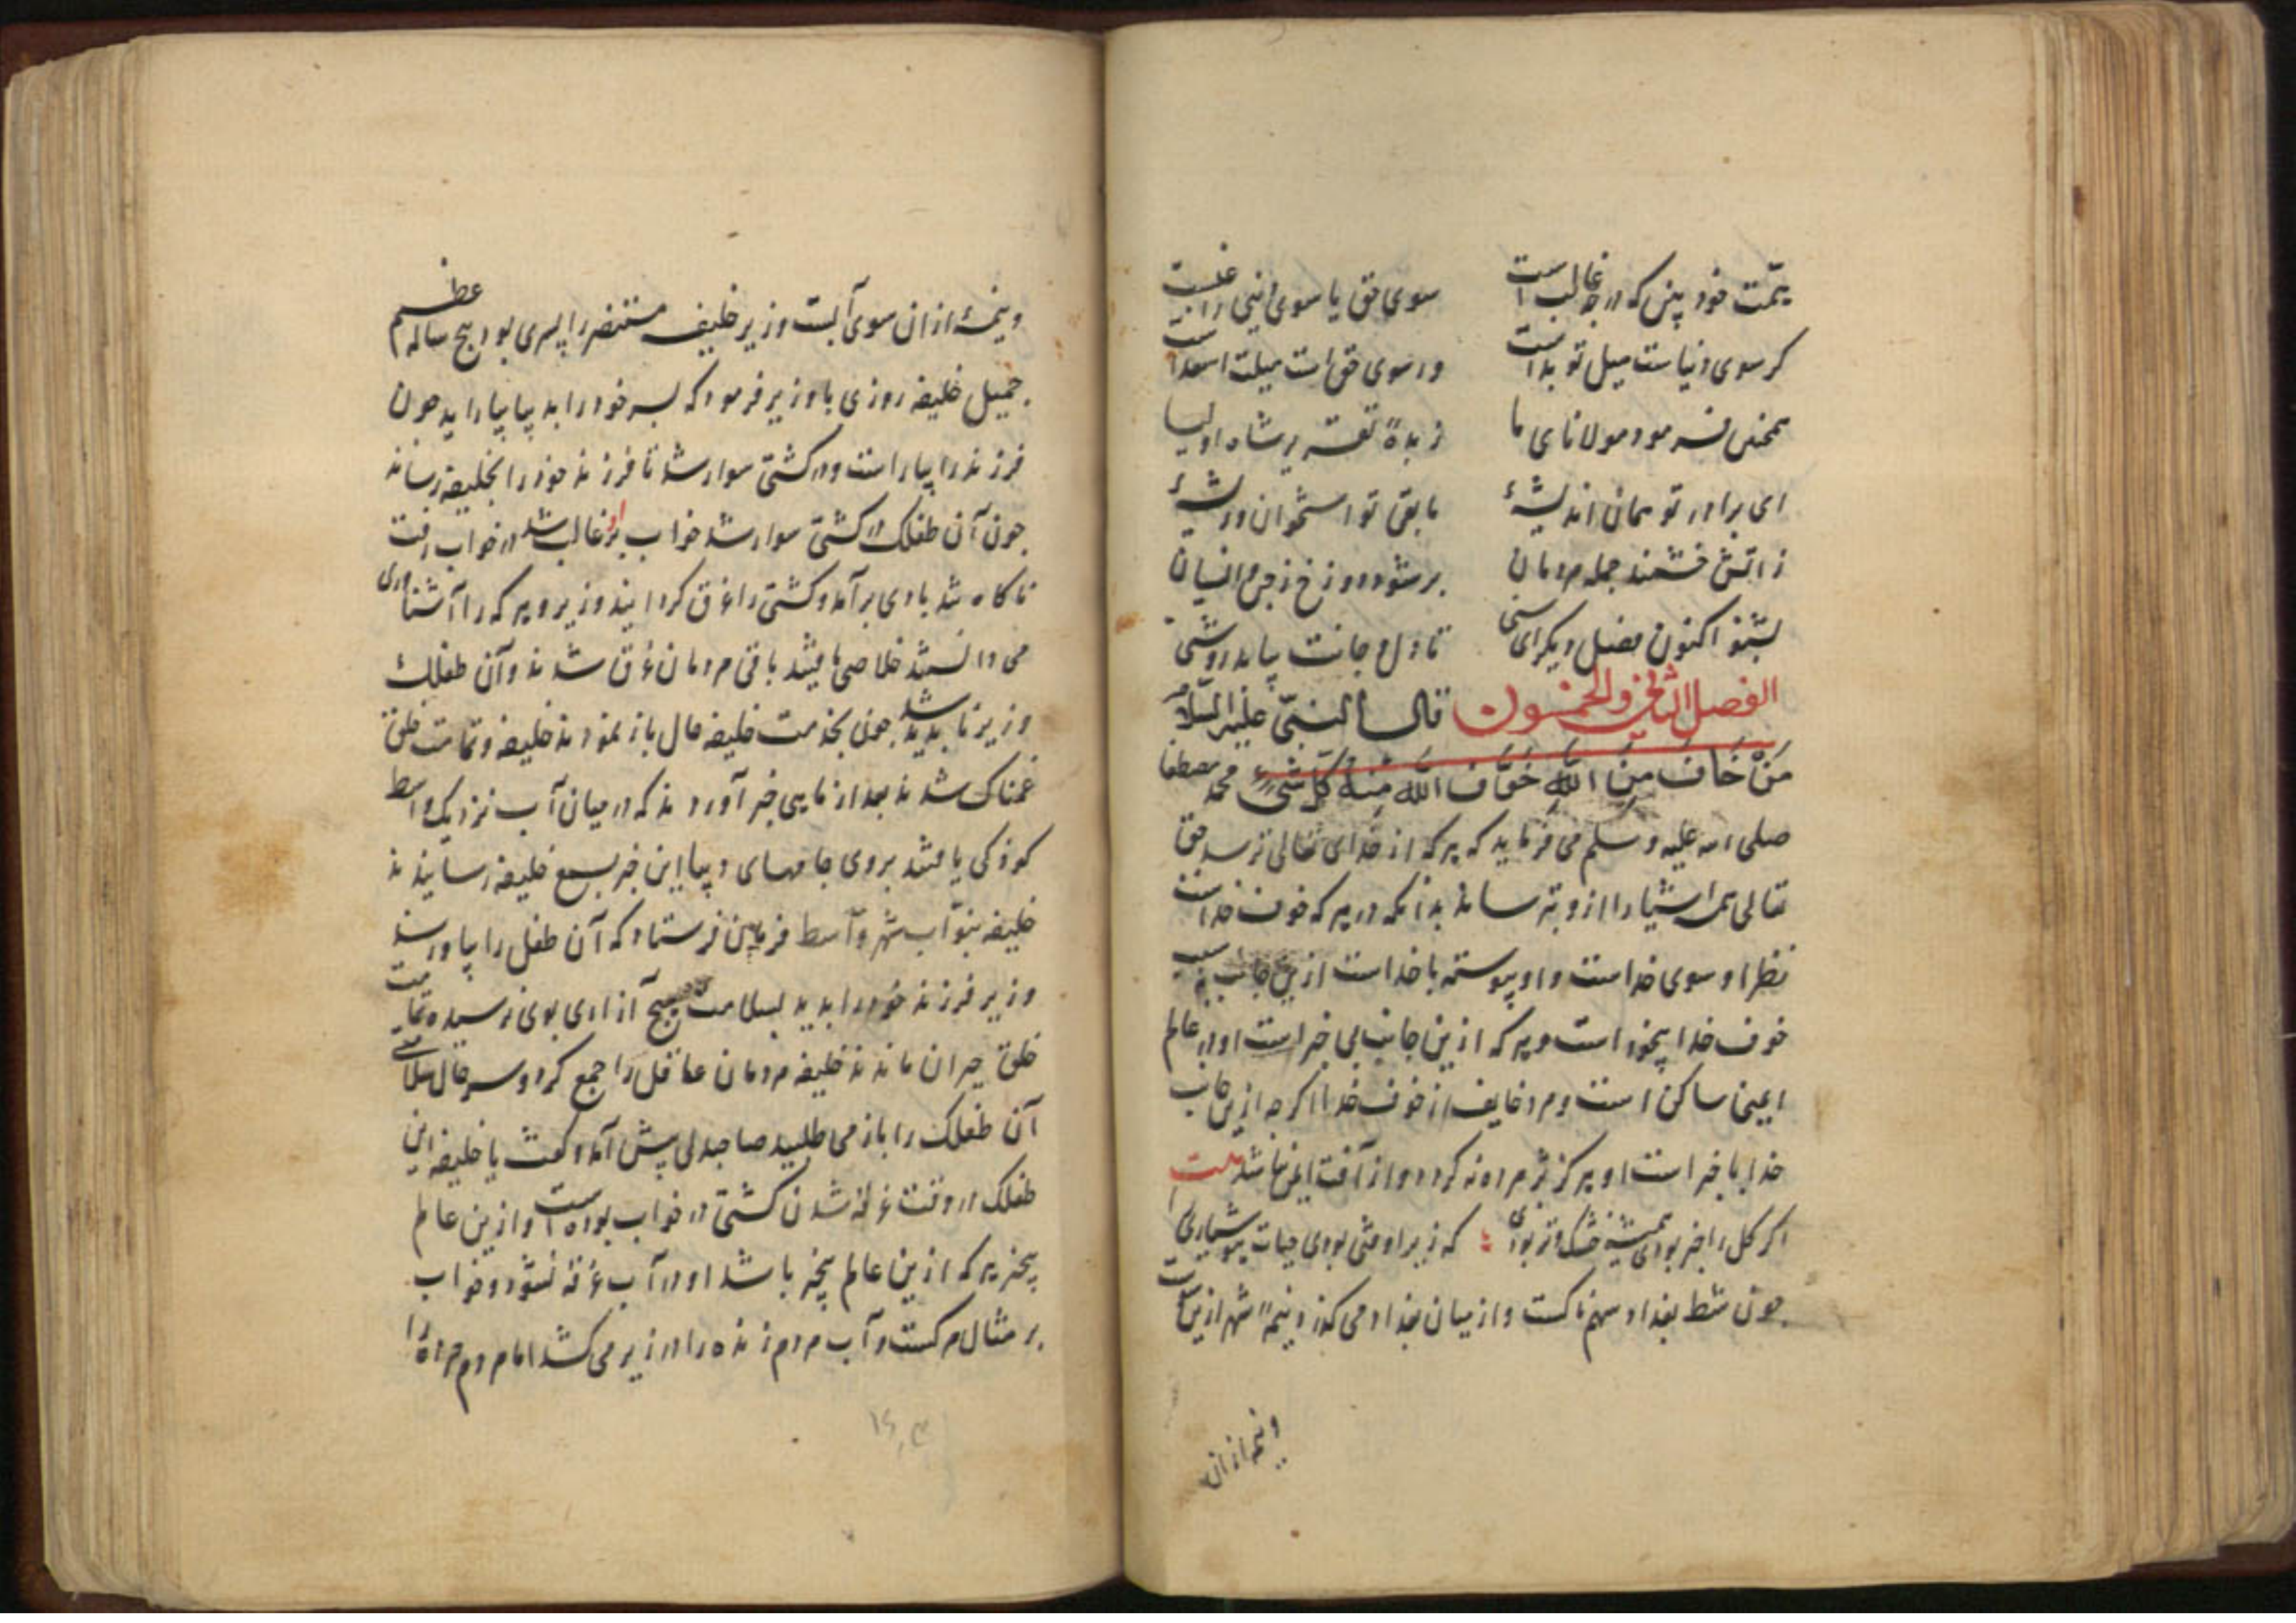 همت خود بین که در چه غالب است
سوی حق یا سوی دنیی راغبست
کر سوی دنیاست میل تو بداست
ور سوی حق است میلت اسعداست
همچنین فرمود مولانای ما
زبدهٔ تقدیر شاه اولیا
ای برادر تو همان اندیشهٔ
مابقی تو استخوان و ریشهٔ
ز آتش خشمند جمله مردمان
بر شود دوزخ ز جن و انسیان
بشنو اکنون فصل دیکر ای سنی
تا دل و جانت بیابد روشنی
الفصل الثانی والخمسون قال النبی علیه السلام
مَنْ خَافَ مِنَ اللّٰهِ خَوَّفَ اللّٰه مِنهُ کُلَّ شَیْءٍ محمد مصطفا
صلی الله علیه وسلم می فرماید که هر که از خدای تعالی ترسد حق
تعالی همه اشیا را ازو بترساند بدانکه در هر که خوف خداست
نظر او سوی خداست و او پیوسته با خداست ازین جانب به سبب
خوف خدا بیخود است و هر که ازین جانب بی خبر است او در عالم
ایمنی ساکن است و مرد خایف از خوف خدا اکر چه ازین جانب
خدا با خبر است او هرکز پژمرده نه کردد و از آفت ایمن باشد بیت
اکر کل را خبر بودی همیشه خشک و تر بودی که زیرا وقتی بودی حیات هوشیاری را
جون شط بغداد سهمناکست و از میان بغداد می کذرد نیمهٔ شهر ازین سوست
و نیمه از ان
و نیمهٔ از ان سوی آبست وزیر خلیفه مستنصر را پسری بود پنج ساله عظیم
جمیل خلیفه روزی با وزیر فرمود که پسر خود را به بیا بیاراید جون
فرزند را بیاراست و در کشتی سوار شد تا فرزند خود را بخلیفه رساند
جون آن طفلک در کشتی سوار شد خواب بر او غالب شد در خواب رفت
ناکاه تند بادی برآمد و کشتی را غرق کردانید وزیر و هر که را آشناوری
می دانستند خلاصی یافتند باقی مردمان غرق شدند و آن طفلک
وزیر ناپدید شد جون بخدمت خلیفه حال باز نمودند خلیفه و تمامت خلق
غمناک شدند بعد از مایی خبر آوردند که در میان آب نزدیک واسط
کوذکی یافتند بروی جامهای دیبا این خبر بسمع خلیفه رسانیدند
خلیفه بنوّاب شهر واسط فرمان فرستاد که آن طفل را بیاورند
وزیر فرزند خود را بدید بسلامت هیچ آزادی بوی نرسیده تمامت
خلق حیران ماندند خلیفه مردمان عاقل را جمع کرد و سر حال سلامتی
آن طفلک را باز می طلبید صاحبدلی پیش آمد و کفت یا خلیفه این
طفلک در وقت غرقه شدن کشتی در خواب بوده است و ازین عالم
بیخبر هر که ازین عالم بیخبر باشد او در آب غرقه نشود و خواب
بر مثال مرکست و آب مردم زنده را در زیر می کشد اما مردم مرده را